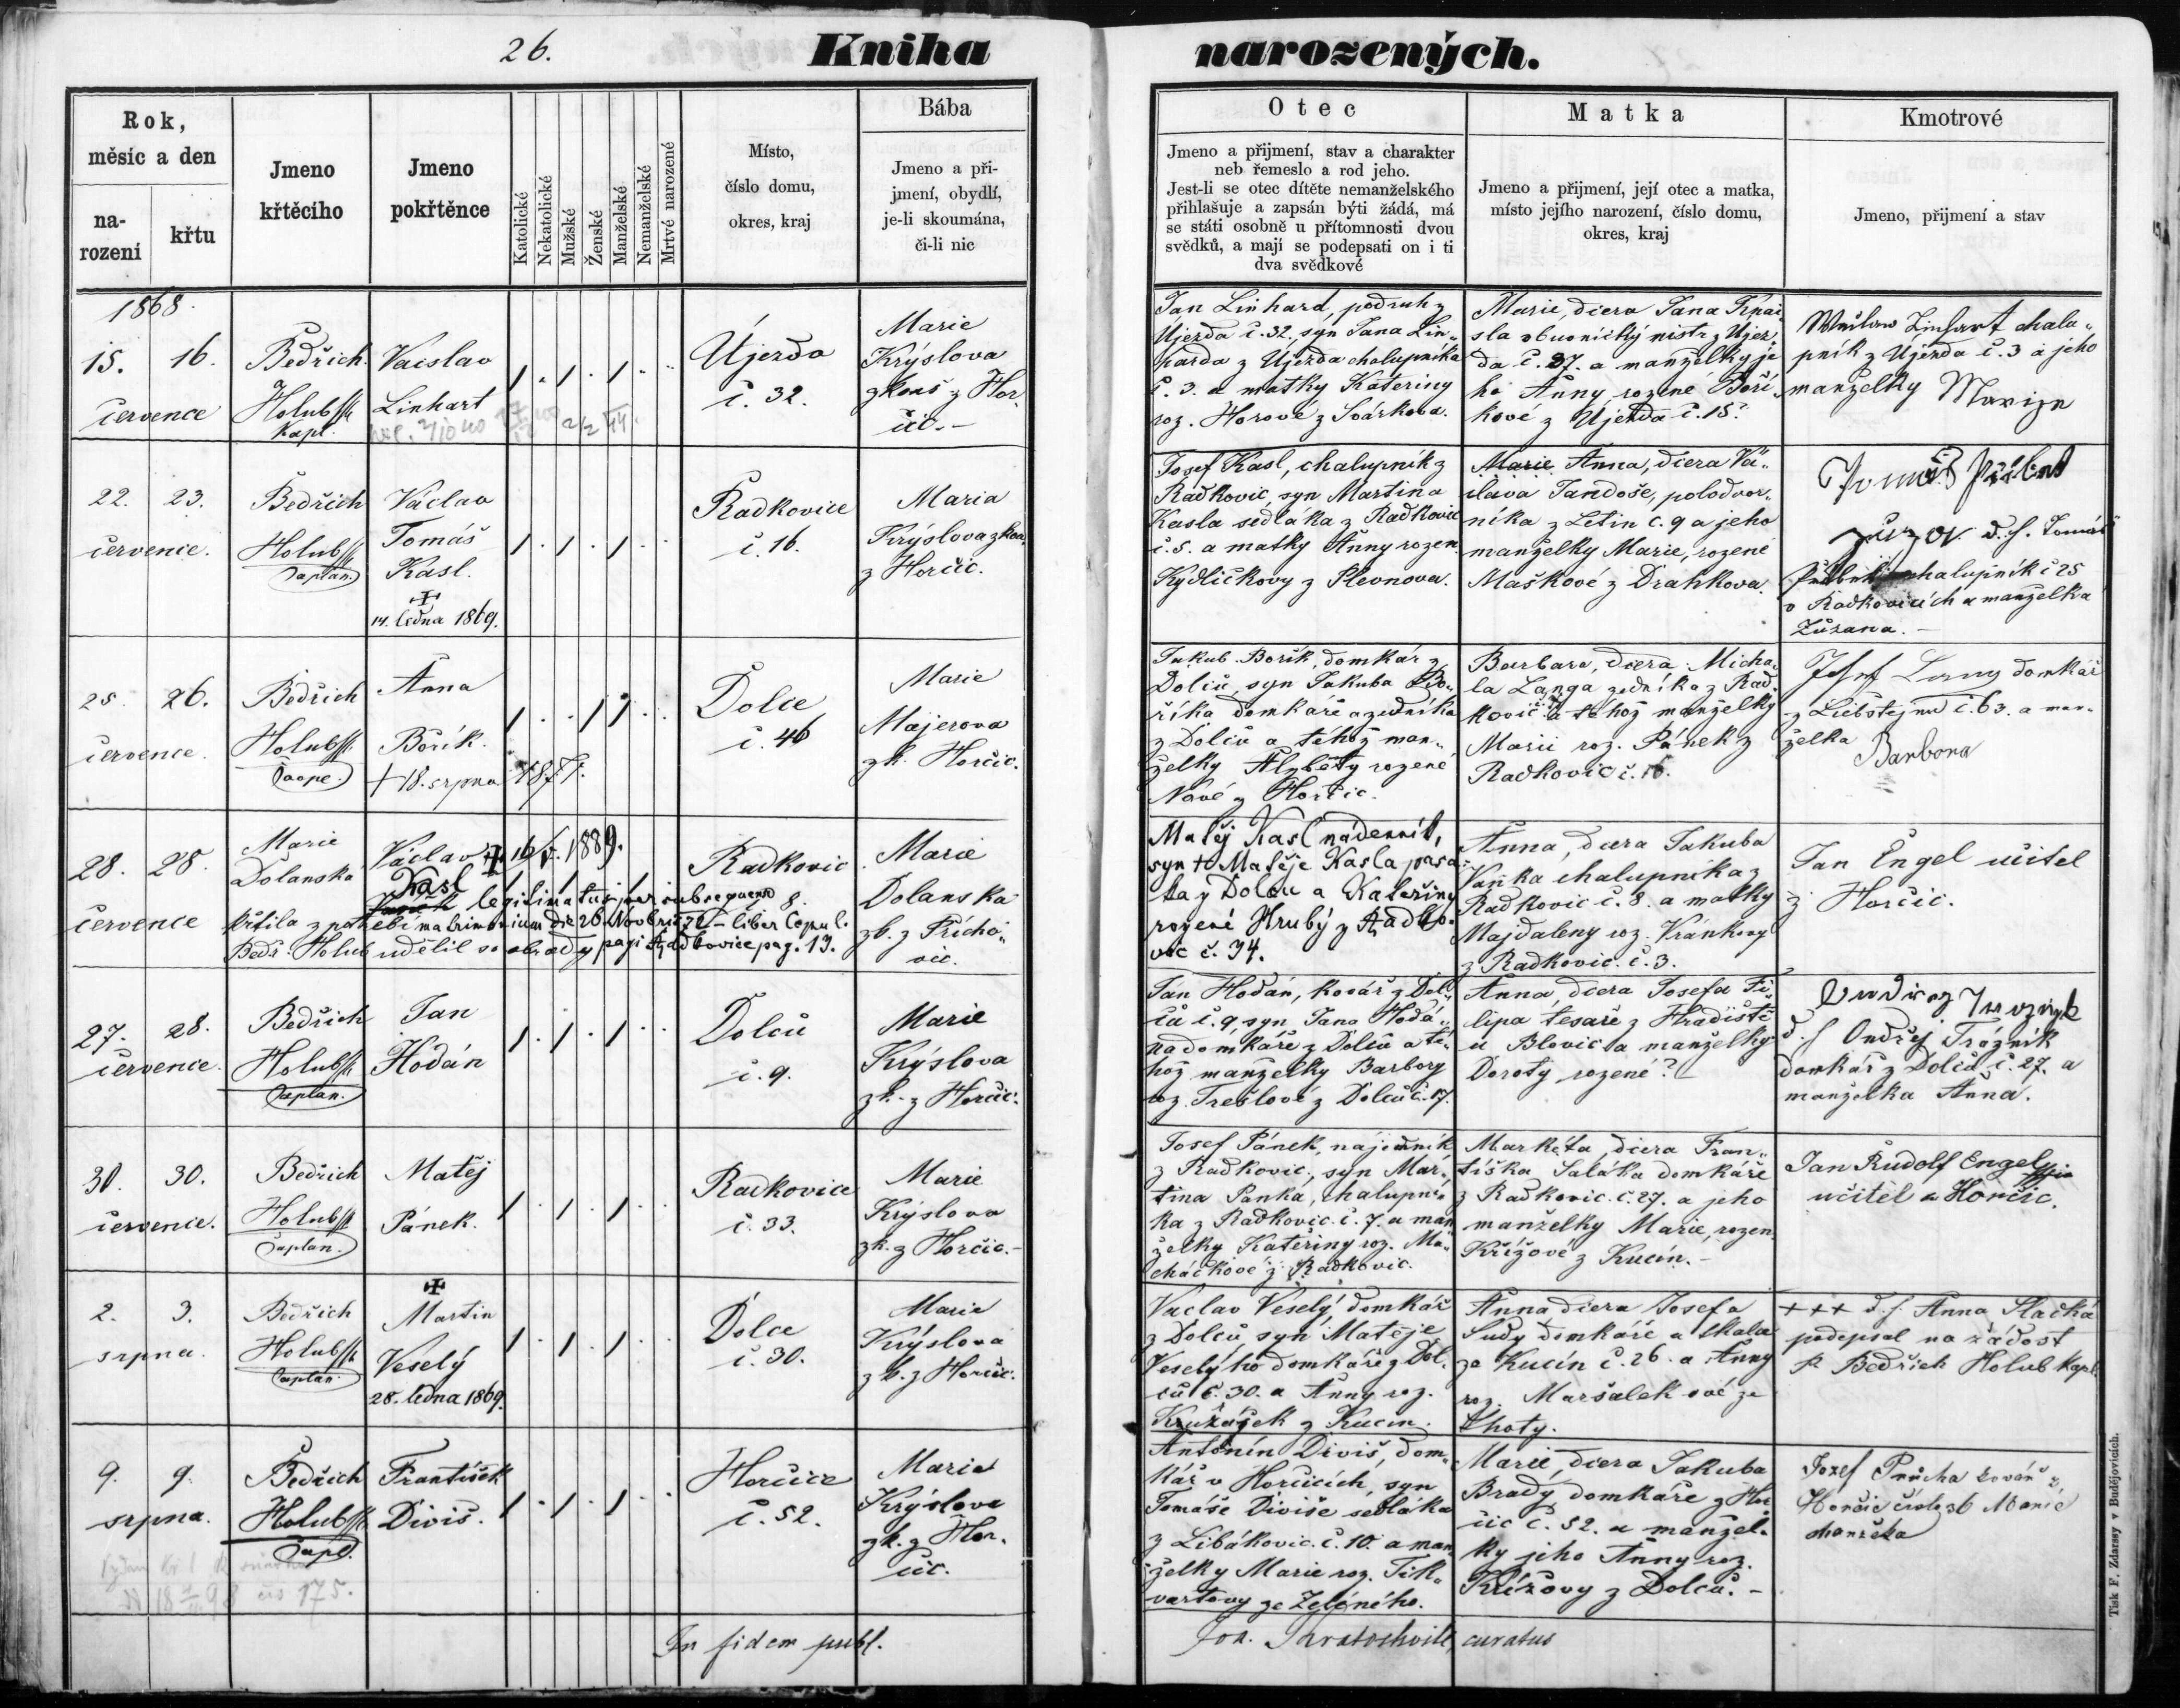 26.
Kniha narozených.
Rok,
měsíc a den
na-
rozeni
křtu
Jmeno
křtěcího
Jmeno
pokřtěnce
Katolické
Nekatolické
Mužské
Ženské
Manželské
Nemanželské
Mrtvé narozené
Místo,
číslo domu,
okres, kraj
Bába
Jmeno a při-
jmení, obydlí,
je-li skoumána,
či-li nic
Otec
Jmeno a přijmení, stav a charakter
neb řemeslo a rod jeho.
Jest-li se otec dítěte nemanželského
přihlašuje a zapsán býti žádá, má
se státi osobně u přítomnosti dvou
svědků, a mají se podepsati on i ti
dva svědkové
Matka
Jmeno a přijmení, její otec a matka,
místo jejího narození, číslo domu,
okres, kraj
Kmotrové
Jmeno, přijmení a stav
1868.
15. 16.
července
Bedřich
Holub
Kapl.
Vácslav
Linhart
Újezda
č. 32.
Marie
Krýslova
zkouš z Hor-
čic.-
Jan Linhard, podruh z
Újezda č. 32, syn Jana Lin-
harda z Újezda chalupníka
č. 3. a matky Kateřiny
roz. Horové z Svárkova.
Marie, dcera Jana
obuvnický mistr z Újez-
da č. 27. a manželky je
ho Anny rozené Boří
kové z Újezda č. 15.
Linhart chalu-
pník z Újezda č. 3 a jeho
manželky
22. 23.
července.
Bedřich
Holub
Caplan.
Václav
Tomáš
Kasl.
14. ledna 1869.
Radkovice
č. 16.
Maria
Krýslova
z Horčic.
Josef Kasl, chalupník z
Radkovic, syn Martina
Kasla sedláka z Radkovic
č. 5. a matky Anny rozen.
Kydličkovy z Plevnova.
Marie Anna, dcera Vá-
clava Tandoše, polodvor-
níka z Letin č. 9 a jeho
manželky Marie, rozené
Maškové z Drahkova.
d. f. Tomáš
chalupník č 25
v Radkovicích a manželka
Zuzana.-
25. 26.
července.
Bedřich
Holub
Anna
Bořík.
+ 18. srpna
Dolce
č. 46
Marie
Majerova
zk. Horčic.
Jakub Bořík, domkář z
Dolců, syn Jakuba Bo-
říka domkáře a zedníka
z Dolců a téhož man-
želky Alžběty rozené
z Horčic.
Barbara, dcera Micha-
la Langa zedníka z Rad-
kovic a téhož manželky
Marii roz. Pánek z
Radkovic č. 16.
Josef Lang domkář
č. 63. a man-
želka
Barbora
28. 28.
července
Marie
Dolanská
křtila z potřebí
Bedř. Holub udělil so obrady
Václav + 16/5. 1889.
Kasl
legitimatus per subsequens
matrimonium die 26. Novbris 72 - liber Copul.
pagi Radkovice pag. 13.
Radkovic
8.
Marie
Dolanska
zb. z Přícho-
vic.
Matěj Kasl nádenník,
syn + Matěje Kasla pasa-
ka z Dolců a Kateřiny
rozené Hrubý z Radko-
vic č. 34.
Anna, dcera Jakuba
Vaňka chalupníka z
Radkovic č. 8. a matky
Majdaleny roz. Vránkovy
z Radkovic. č. 3.
Jan Engel učitel
z Horčic.
27. 28.
července.
Bedřich
Holub
Caplan.
Jan
Hodán
Dolců
č. 9.
Marie
Krýslova
zk. z Horčic.
Jan Hodán, kovář z Dol-
ců č. 9, syn Jana Hodá-
na domkáře z Dolců a té-
hož manželky Barbory
roz. Trešlové z Dolců č. 17.
Anna, dcera Josefa Fi-
lipa tesaře z Hradiště
u Blovic a manželky
Doroty rozené?
d. f. Ondřej Trázník
domkář z Dolců č. 27. a
manželka Anna.
30. 30.
července.
Bedřich
Holub
Caplan.
Matěj
Pánek.
Radkovice
č. 33.
Marie
Krýslova
zk. z Horčic.-
Josef Pánek, nájemník
z Radkovic, syn Mar-
tina Panka, chalupní-
ka z Radkovic. č. 7. a man
želky Kateřiny roz. Ma-
cháčkové z Radkovic.
Markéta, dcera Fran-
tiška Saláka domkáře
z Radkovic. č. 27. a jeho
manželky Marie, rozen.
Křížové z Kucín.-
Jan Rudolf Engel
učitel z Horčic.
2. 3.
srpna.
Bedřich
Holub
Caplan.
Martin
Veselý
28. ledna 1869.
Dolce
č. 30.
Marie
Krýslová
zk. z Horčic.
Václav Veselý domkář
z Dolců syn Matěje
Veselýho domkáře z Dol-
ců č. 30. a Anny roz.
z Kucín.
Anna dcera Josefa
Sudy domkáře a
ze Kucín č. 26. a Anny
roz. Maršalek ové ze
Lhoty.
+++ d. f. Anna Slacká
podepsal na žádost
Bedřich Holub kapl.
9. 9.
srpna.
Bedřich
Holub
Capl.
František
Diviš.
Horčice
č. 52.
Marie
Krýslova
zk. z Hor-
čic.
Antonín Diviš, dom-
kář v Horčicích, syn
Tomáše Diviše sedláka
z Libákovic. č. 10. a man
želky Marie roz. Tik-
vartovy ze Zeleného.
Marie, dcera Jakuba
Brady domkáře z Hor
čic č. 52. a manžel-
ky jeho Anny roz.
Křížovy z Dolců.-
Jozef Průcha kovář z
Horčic číslo 36 Marie
manželka
In fidem publ.
curatus
Tisk F. Zdarssy v Budějovicích.